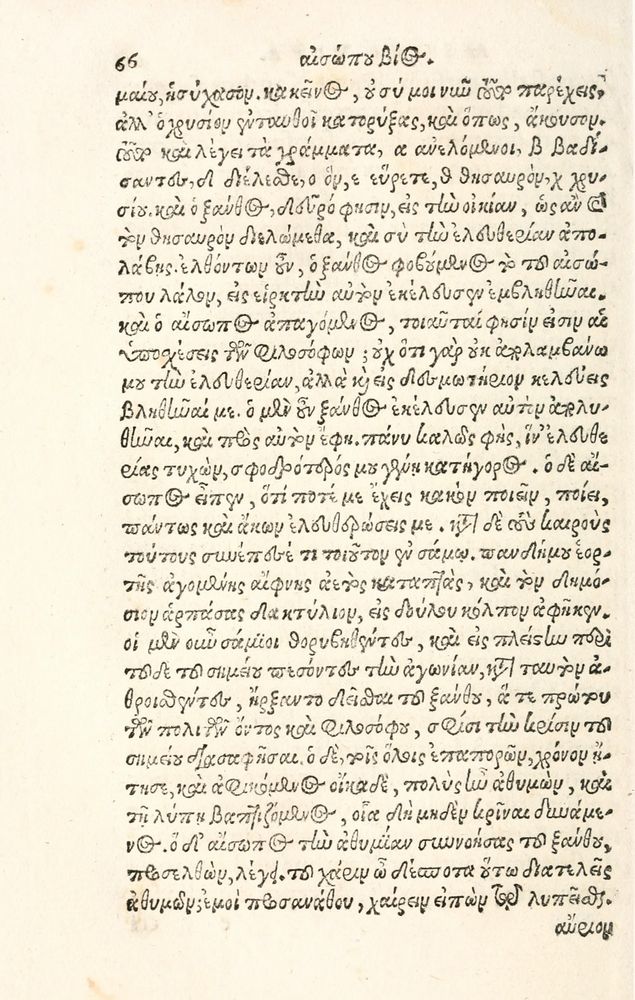 66 αἰσώπου βίος.
μαίου, ἡσύχασον. κἀκεῖνος, οὐ σύ μοι νῦν τοῦτον παρέχεις,
ἀλλ' ὁ χρυσίον ἐνταυθοῖ κατορύξας, καὶ ὅπως, ἄκουσον.
τοῦτον καὶ λέγει τὰ γράμματα, α ἀνελόμενοι, β βαδί-
σαντες, δ διέλεσθε, ο ὃν, ε εὕρετε, θ θησαυρὸν, χ χρυ-
σίου. καὶ ὁ ξάνθος, δεῦρό φησιν, εἰς τὴν οἰκίαν, ὡς ἂν καὶ
τὸν θησαυρὸν διελώμεθα, καὶ σὺ τὴν ἐλευθερίαν ἀπο-
λάβῃς. ἐλθόντων οὖν, ὁ ξάνθος φοβούμενος τὸ τοῦ αἰσώ-
που λάλον, εἰς εἱρκτὴν αὐτὸν ἐκέλευσεν ἐμβληθῆναι.
καὶ ὁ αἴσωπος ἀπαγόμενος, τοιαῦταί φησίν εἰσιν αἱ
ὑποσχέσεις τῶν φιλοσόφων; οὐχ ὅτι γὰρ οὐκ ἀπολαμβάνω
μου τὴν ἐλευθερίαν, ἀλλὰ καὶ εἰς δεσμωτήριον κελεύεις
βληθῆναί με. ὁ μὲν οὖν ξάνθος ἐκέλευσεν αὐτὸν ἀπολυ-
θῆναι, καὶ πρὸς αὐτὸν ἔφη. πάνυ καλῶς φῂς, ἵν' ἐλευθε
ρίας τυχὼν, σφοδρότερός μου γένῃ κατήγορος. ὁ δὲ αἴ-
σωπος εἶπεν, ὅτι ποτέ με ἔχεις κακὸν ποιεῖν, ποίει,
πάντως καὶ ἄκων ἐλευθερώσεις με. κατὰ δὲ τοὺς καιροὺς
τούτους συνέπεσέ τι τοιοῦτον ἐν σάμῳ. πανδήμου ἑορ-
τῆς ἀγομένης αἴφνης ἀετὸς καταπτὰς, καὶ τὸν δημό-
σιον ἁρπάσας δακτύλιον, εἰς δούλου κόλπον ἀφῆκεν.
οἱ μὲν οὖν σάμιοι θορυβηθέντες, καὶ εἰς πλείστην περὶ
τοῦδε τοῦ σημείου πεσόντες τὴν ἀγωνίαν, κατὰ ταυτὸν ἀ-
θροισθέντες, ἤρξαντο δεῖσθαι τοῦ ξάνθου, ἅτε πρώτου
τῶν πολιτῶν ὄντος καὶ φιλοσόφου, σφίσι τὴν κρίσιν τοῦ
σημείου διασαφῆσαι. ὁ δὲ, τοῖς ὅλοις ἐπαπορῶν, χρόνον ᾔ-
τησε, καὶ ἀφικόμενος οἴκαδε, πολὺς ἦν ἀθυμῶν, καὶ
τῇ λύπῃ βαπτιζόμενος, οἷα δὴ μηδὲν κρῖναι δυνάμε-
νος. ὁ δ' αἴσωπος τὴν ἀθυμίαν συννοήσας τοῦ ξάνθου,
προσελθὼν, λέγει. τοῦ χάριν ὦ δέσποτα οὕτω διατελεῖς
ἀθυμῶν; ἐμοὶ προσανάθου, χαίρειν εἰπὼν τῷ λυπεῖσθαι.
αὔριον